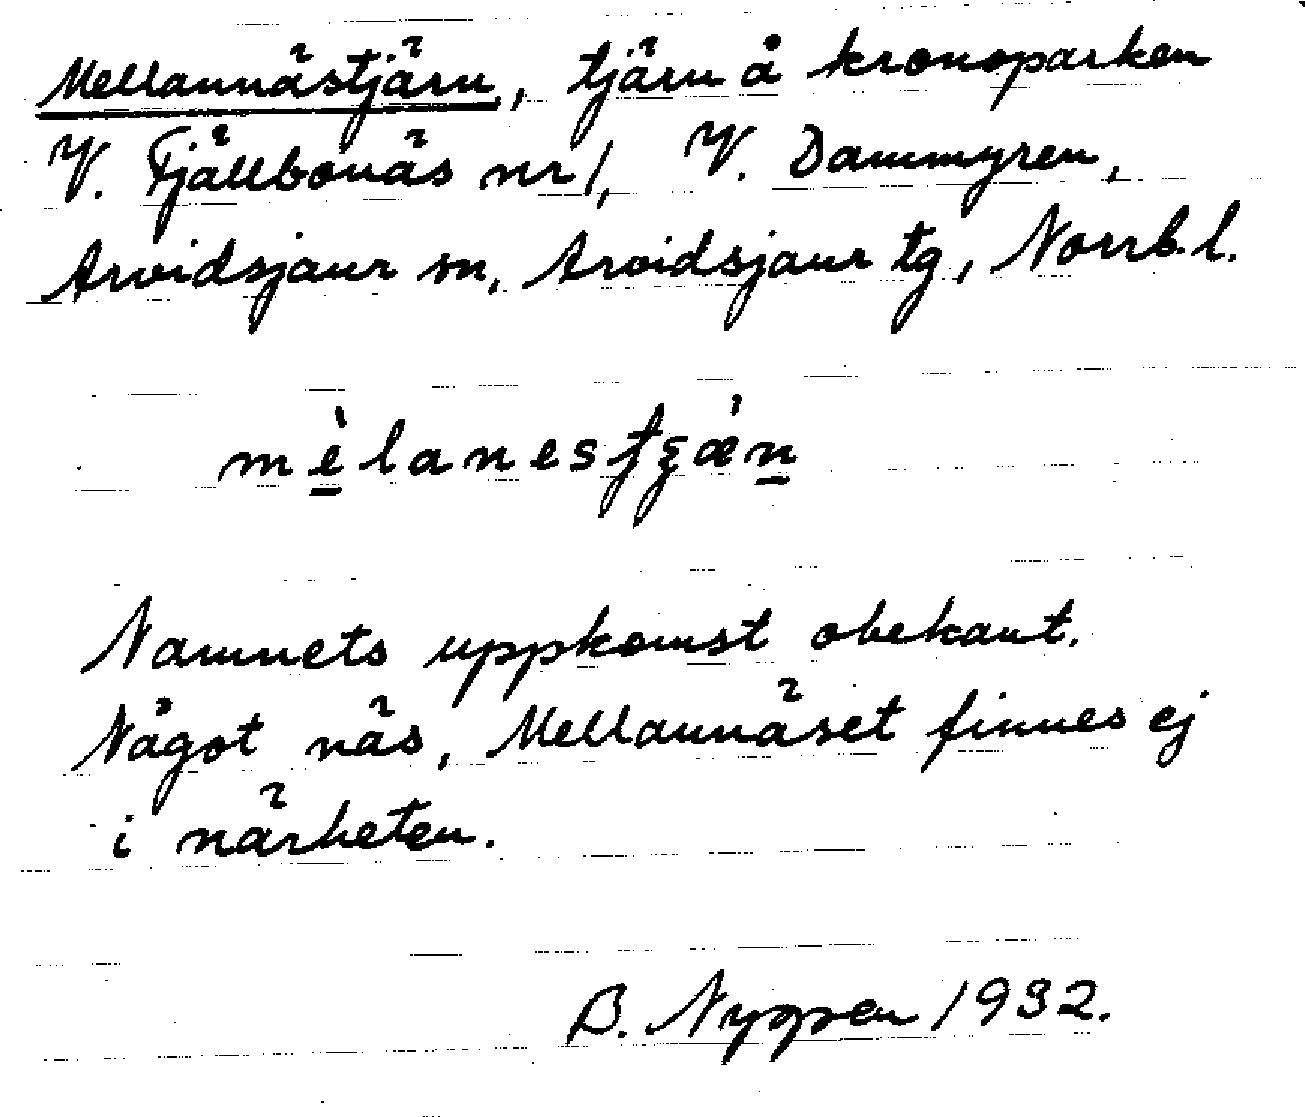 Mellannästjärn, tjärn å kronoparken
V. Fjällbonäs nr 1, V. Dammyren,
Arvidsjaur sn, Arvidsjaur tg, Norrb. l.
mèlanestʒæ̀n
Namnets uppkomst obekant.
Något näs, Mellannäset finnes ej
i närheten.
B. Nygren 1932.